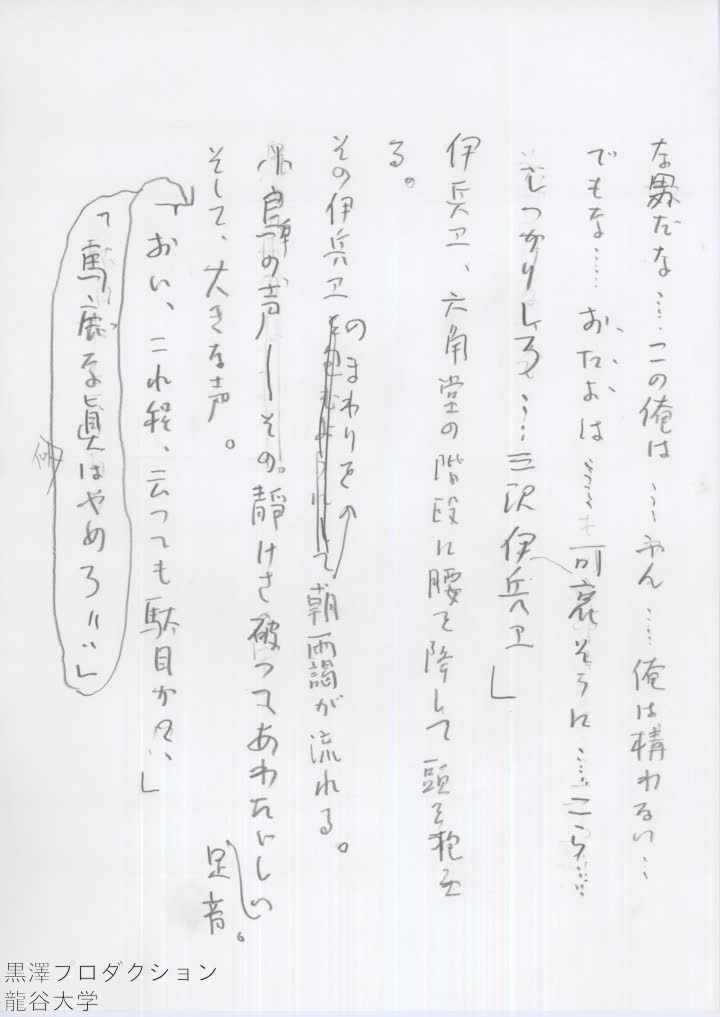 な男だな……この俺は……ふん……俺は構わない…
でもな……およおは……可哀そうに……こら……
しつかりしろ……三沢伊兵ヱ」
伊兵ヱ、六角堂の階段に腰を降して頭を抱え
る。
その伊兵ヱのまわりを朝雨靄が流れる。
小鳥の声――その静けさ破つてあわたゞしい足音。
そして、大きな声。
「おい、これ程、云つても駄目か!?」
「馬鹿な真似はやめろ!!」
黒澤プロダクション
龍谷大学